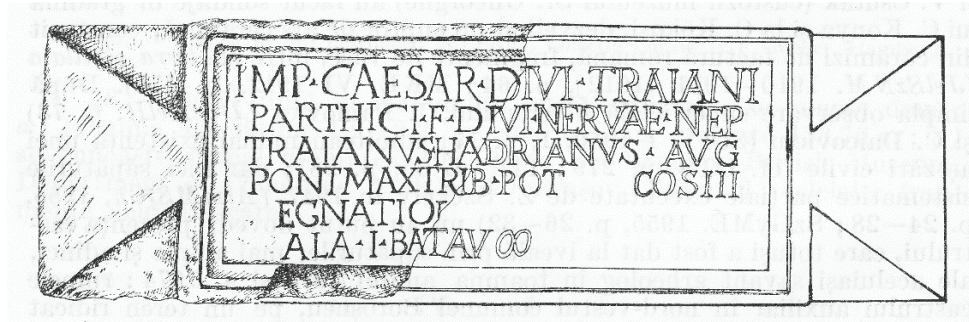 IMP·CAESAR DIVI·TRAIANI
PARTHICI·F·DIVI·NERVAE·NEP
TRAIANVS HADRIANVS·AVG
PONT MAX TRIB·POT COS III
ALA I·BATAV ∞